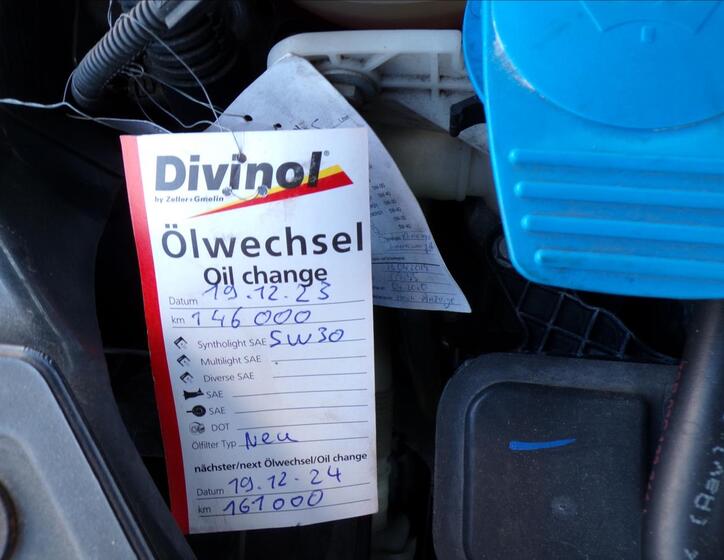 Divinol®
by Zeller+Gmelin
Ölwechsel
Oil change
Datum 19.12.23
km 146000
Syntholight SAE 5W30
Multilight SAE
Diverse SAE
SAE
SAE
DOT
Ölfilter Typ Neu
nächster/next Ölwechsel/Oil change
Datum 19.12.24
km 161000